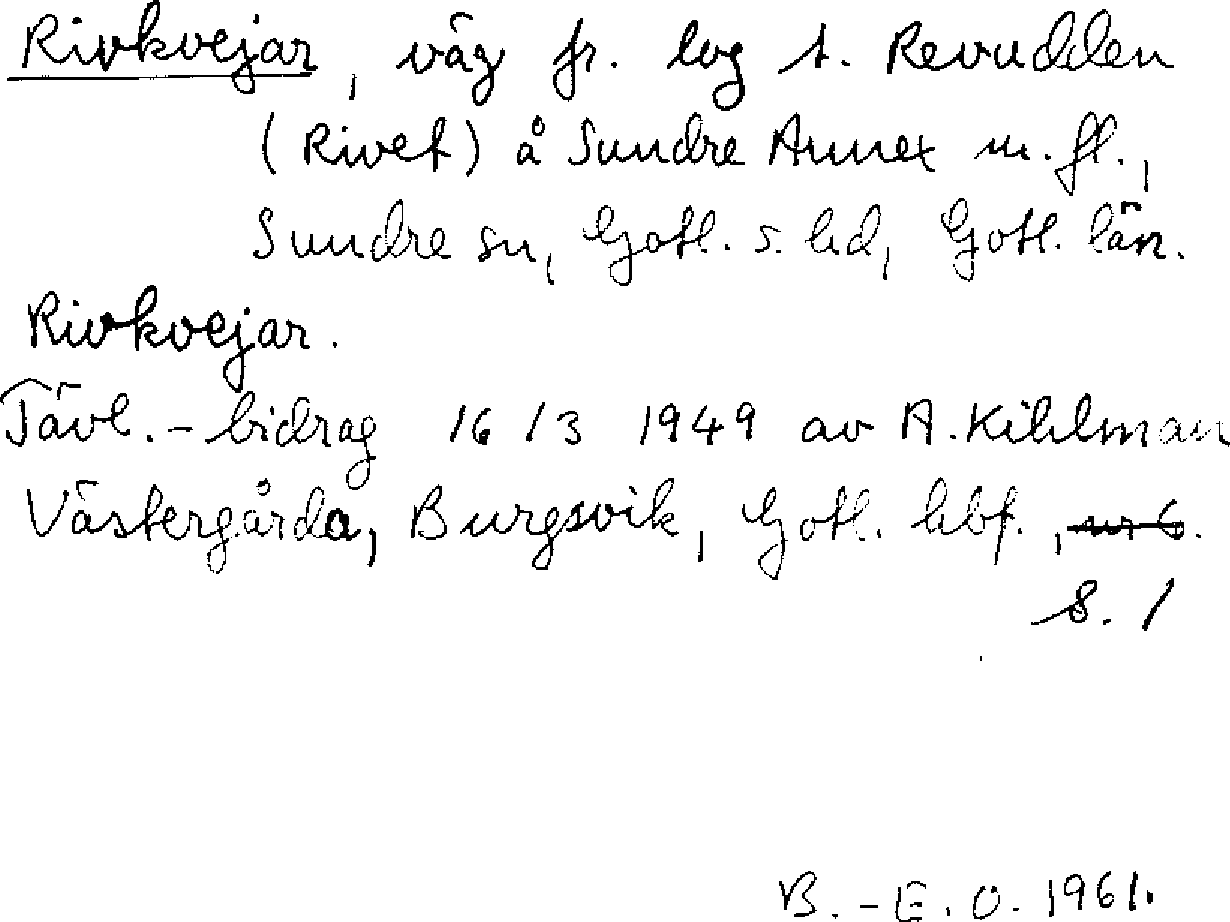 Rivkvejar, väg fr. log t. Revudden
(Rivet) å Sundre Annex m. fl.,
Sundre sn, Gotl. s. hd, Gotl. län.
Rivkvejar.
Tävl.-bidrag 16/3 1949 av A. Kihlman
Västergårda, Burgsvik, Gotl. hbf.,
s. 1
B.-E. O. 1961.